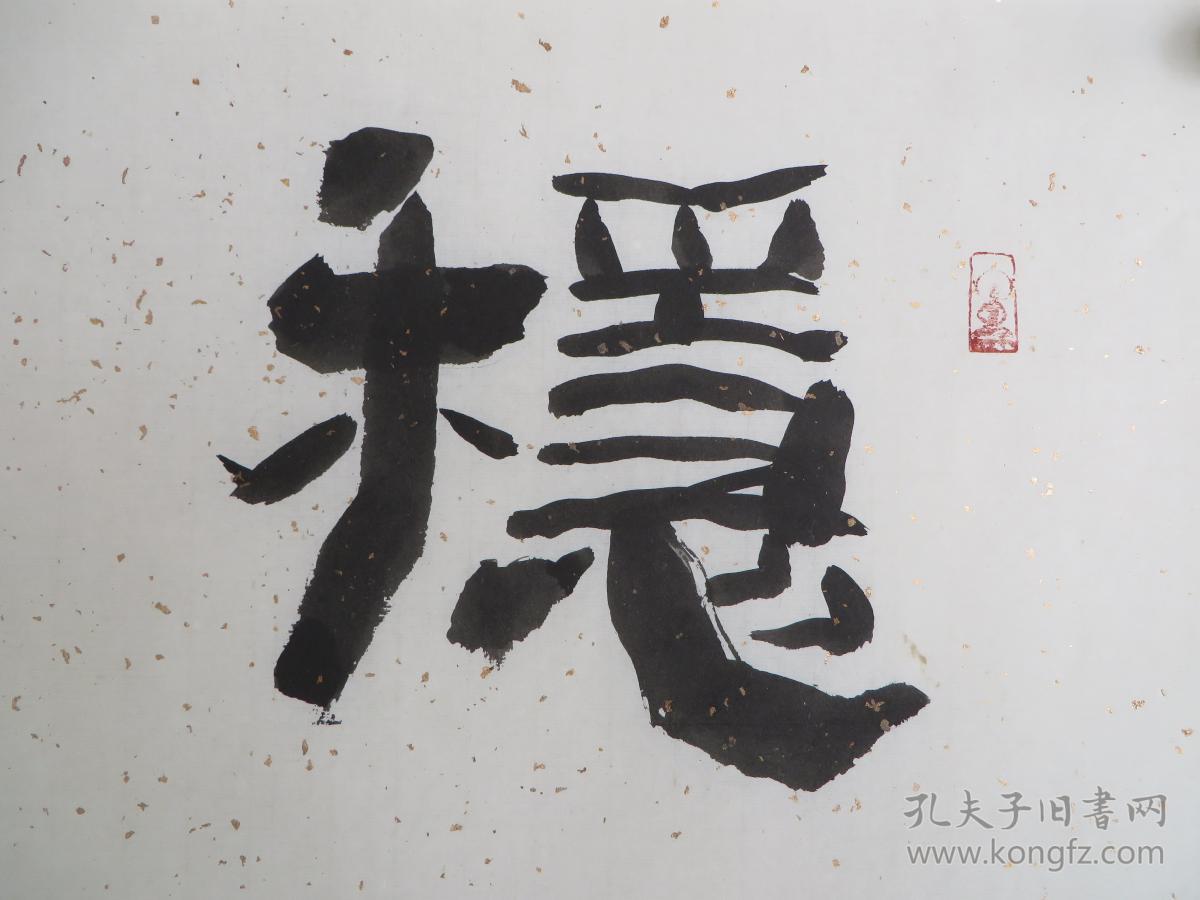 穩
孔夫子旧書网
www.kongfz.com